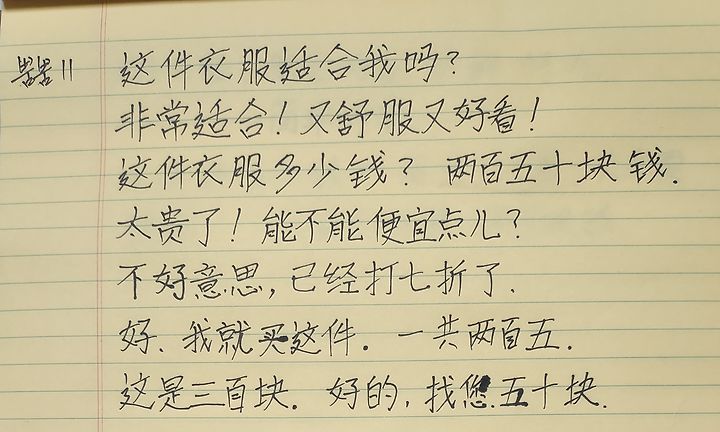 这件衣服适合我吗?
非常适合!又舒服又好看!
这件衣服多少钱? 两百五十块钱.
太贵了!能不能便宜点儿?
不好意思,已经打七折了.
好.我就买这件. 一共两百五.
这是三百块. 好的,找您五十块.